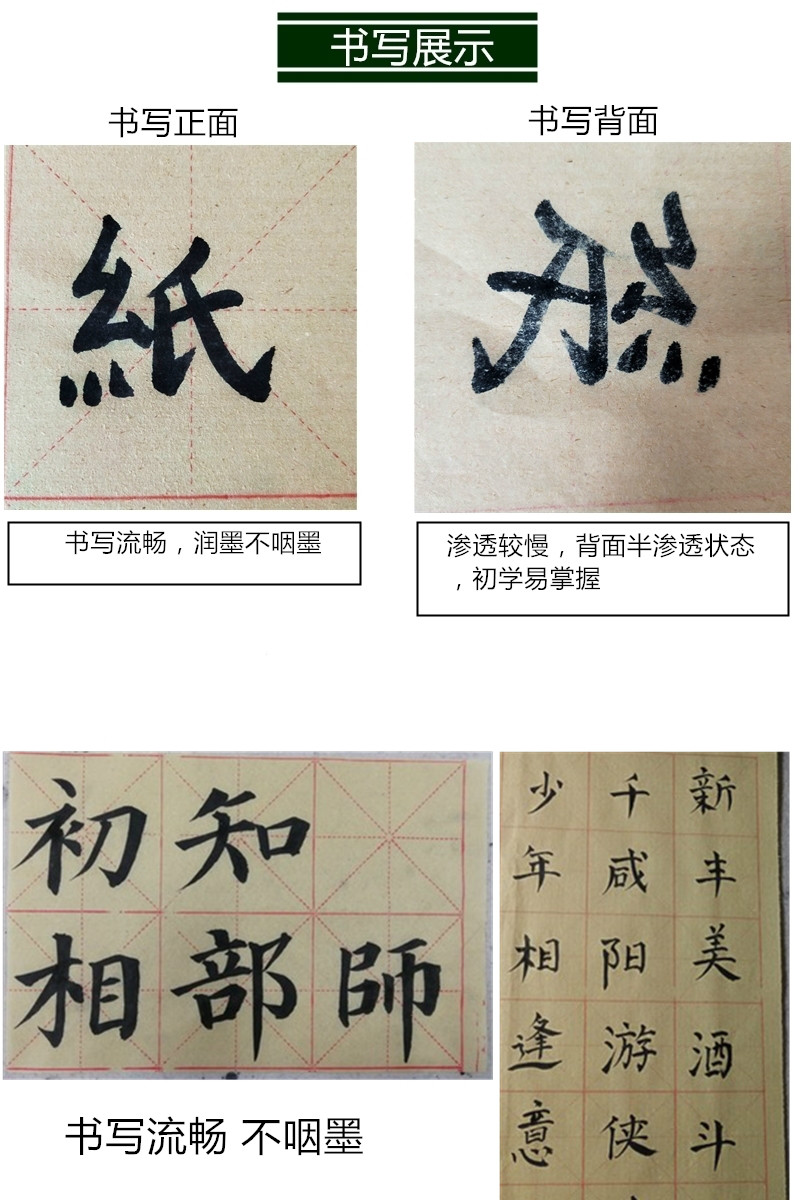 书写展示
书写正面
书写背面
紙
紙
书写流畅，润墨不咽墨
渗透较慢，背面半渗透状态
，初学易掌握
初知
相部師
新丰美酒斗
千咸阳游侠
少年相逢意
书写流畅 不咽墨